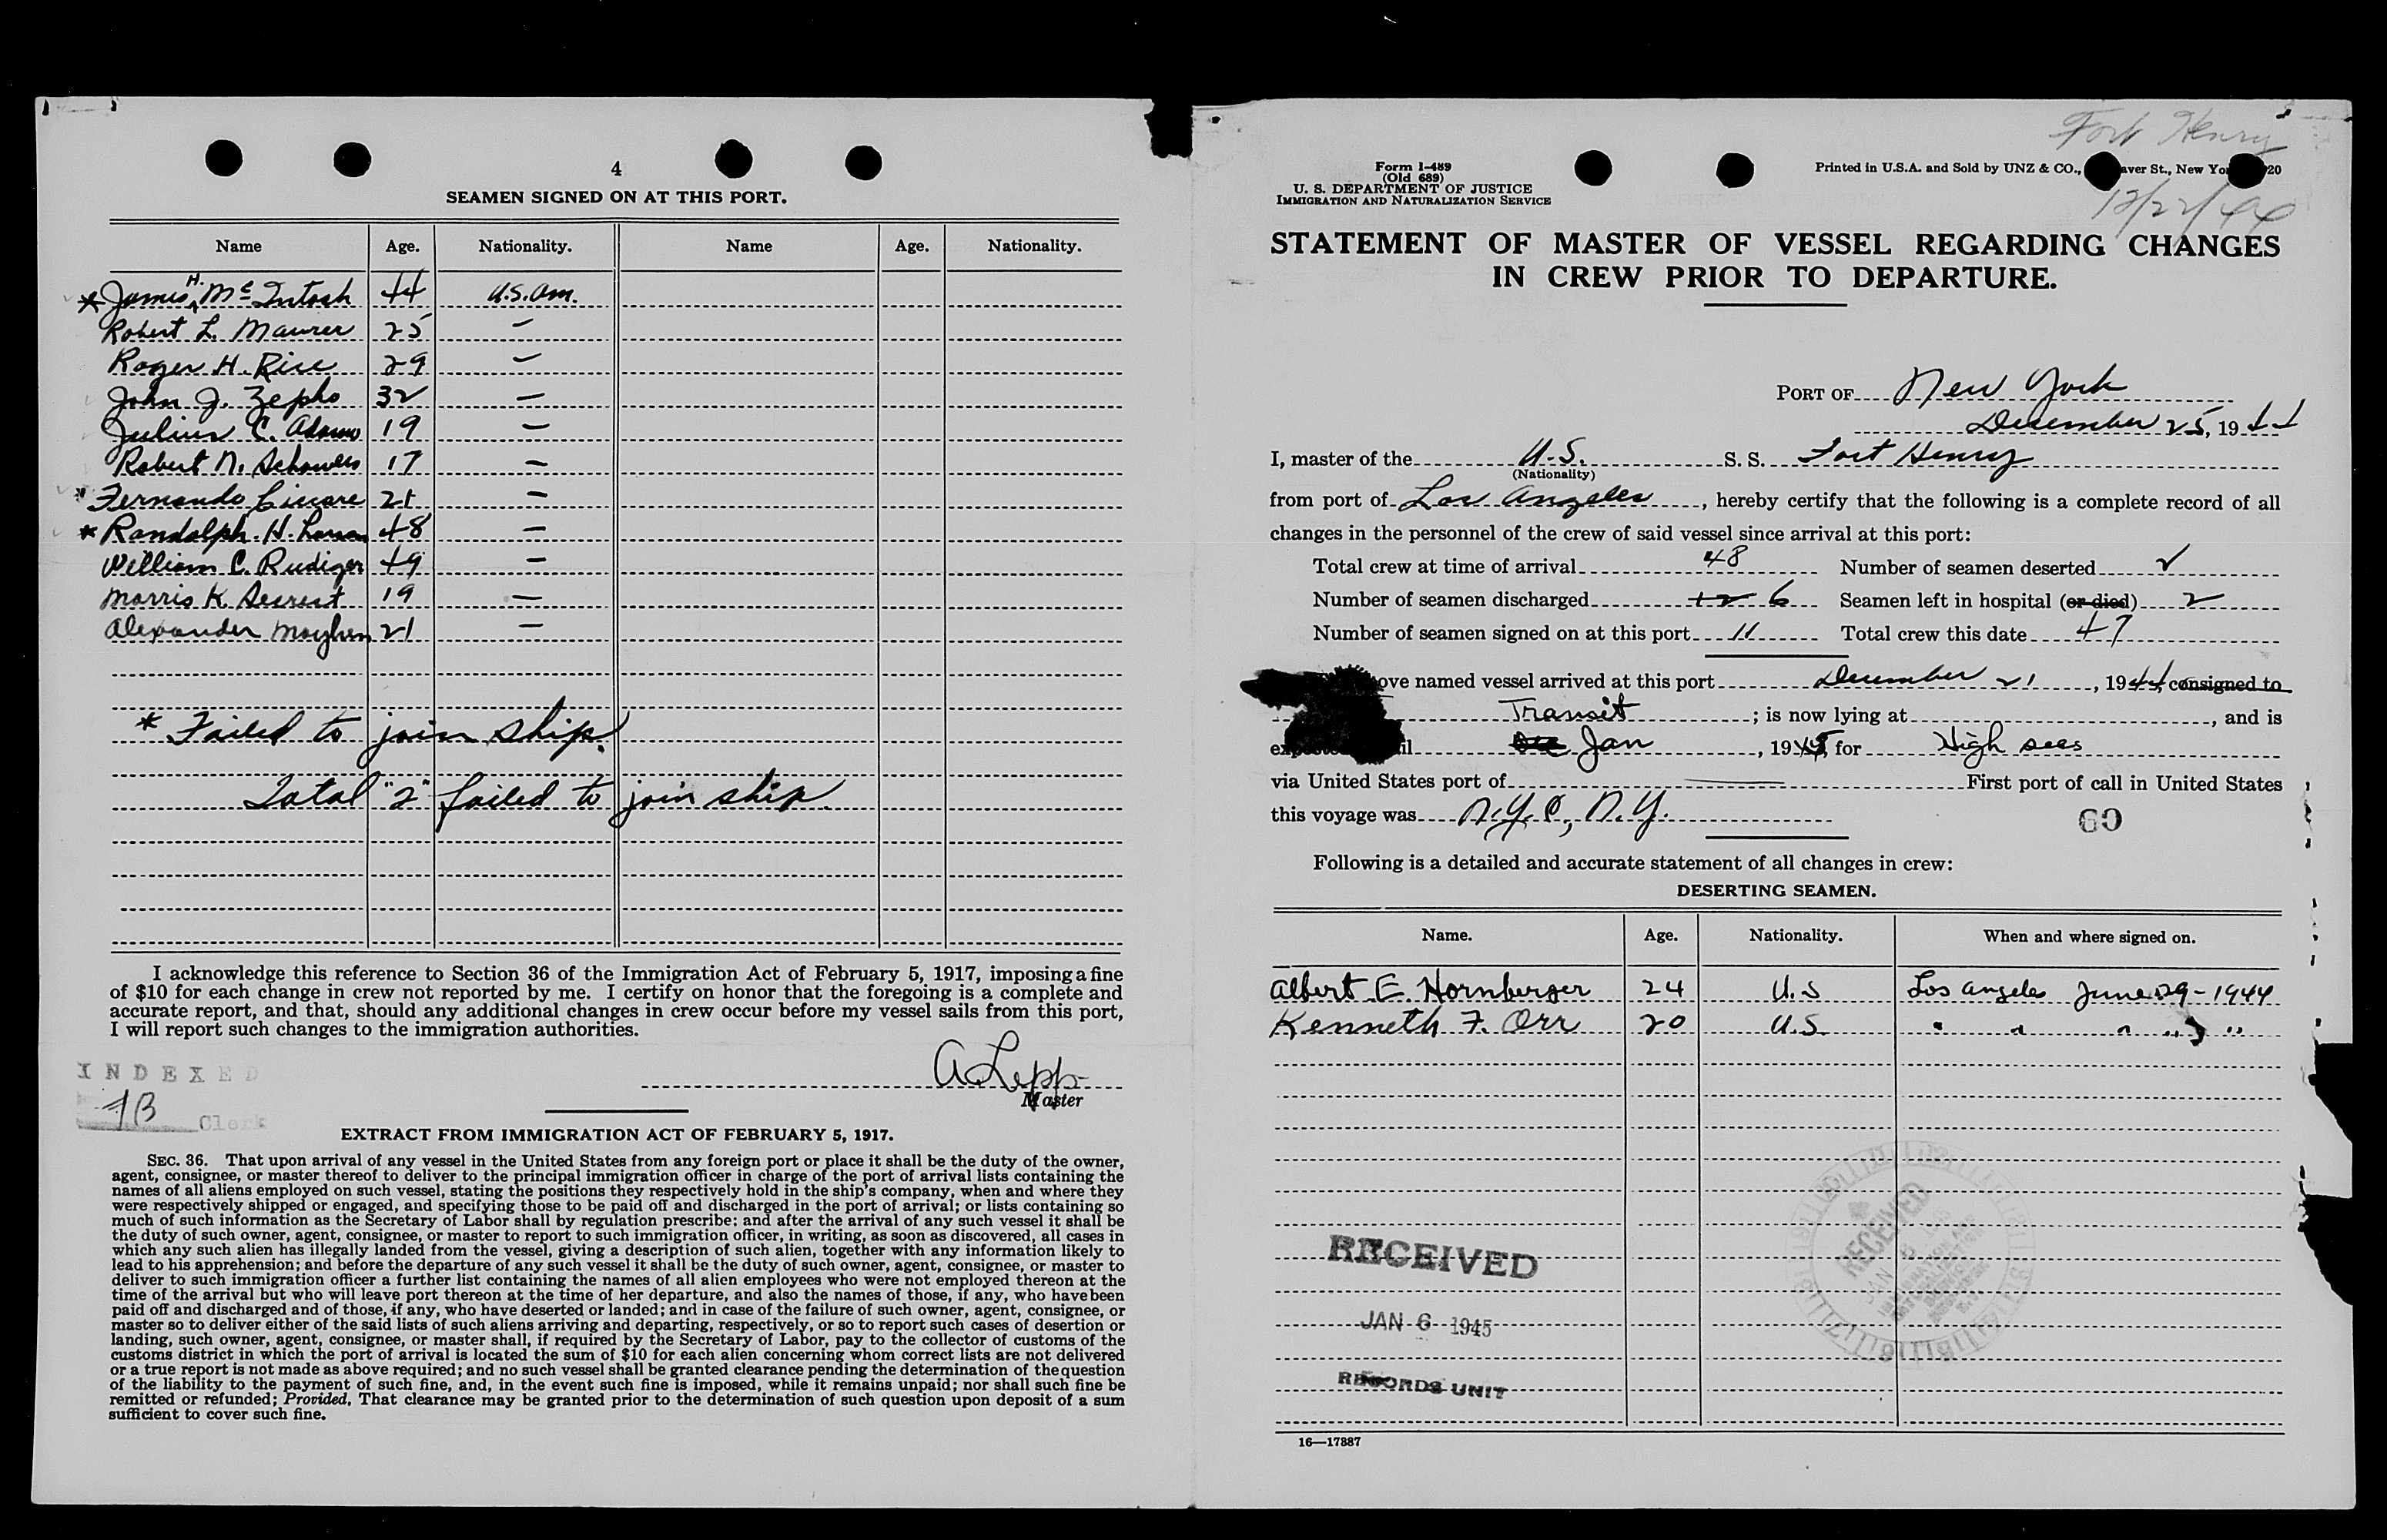 4
SEAMEN SIGNED ON AT THIS PORT.
Name Age. Nationality. Name Age. Nationality.
* James H. McIntosh 44 U.S. Am.
Robert L. Maurer 25 —
Roger H. Rice 29 —
John J. Zepko 32 —
Julius C. Adams 19 —
Robert N. 17 —
* Fernando Ciccare 21 —
* Randolph H. Larson 48 —
William C. Rudiger 49 —
Morris K. Secrest 19 —
Alexander Mayhew 21 —
* Failed to join ship.
Total "2" failed to join ship.
I acknowledge this reference to Section 36 of the Immigration Act of February 5, 1917, imposing a fine
of $10 for each change in crew not reported by me. I certify on honor that the foregoing is a complete and
accurate report, and that, should any additional changes in crew occur before my vessel sails from this port,
I will report such changes to the immigration authorities.
A Lepp
Master
INDEXED
Clerk
EXTRACT FROM IMMIGRATION ACT OF FEBRUARY 5, 1917.
SEC. 36. That upon arrival of any vessel in the United States from any foreign port or place it shall be the duty of the owner,
agent, consignee, or master thereof to deliver to the principal immigration officer in charge of the port of arrival lists containing the
names of all aliens employed on such vessel, stating the positions they respectively hold in the ship's company, when and where they
were respectively shipped or engaged, and specifying those to be paid off and discharged in the port of arrival; or lists containing so
much of such information as the Secretary of Labor shall by regulation prescribe; and after the arrival of any such vessel it shall be
the duty of such owner, agent, consignee, or master to report to such immigration officer, in writing, as soon as discovered, all cases in
which any such alien has illegally landed from the vessel, giving a description of such alien, together with any information likely to
lead to his apprehension; and before the departure of any such vessel it shall be the duty of such owner, agent, consignee, or master to
deliver to such immigration officer a further list containing the names of all alien employees who were not employed thereon at the
time of the arrival but who will leave port thereon at the time of her departure, and also the names of those, if any, who have been
paid off and discharged and of those, if any, who have deserted or landed; and in case of the failure of such owner, agent, consignee, or
master so to deliver either of the said lists of such aliens arriving and departing, respectively, or so to report such cases of desertion or
landing, such owner, agent, consignee, or master shall, if required by the Secretary of Labor, pay to the collector of customs of the
customs district in which the port of arrival is located the sum of $10 for each alien concerning whom correct lists are not delivered
or a true report is not made as above required; and no such vessel shall be granted clearance pending the determination of the question
of the liability to the payment of such fine, and, in the event such fine is imposed, while it remains unpaid; nor shall such fine be
remitted or refunded; Provided, That clearance may be granted prior to the determination of such question upon deposit of a sum
sufficient to cover such fine.
Fort Henry
12/22/44
Form I-489
(Old 689)
U. S. DEPARTMENT OF JUSTICE
IMMIGRATION AND NATURALIZATION SERVICE
Printed in U.S.A. and Sold by UNZ & CO., aver St., New Yo 20
STATEMENT OF MASTER OF VESSEL REGARDING CHANGES
IN CREW PRIOR TO DEPARTURE.
PORT OF New York
December 25, 1944
I, master of the U.S. S. S. Fort Henry
(Nationality)
from port of Los Angeles, hereby certify that the following is a complete record of all
changes in the personnel of the crew of said vessel since arrival at this port:
Total crew at time of arrival 48 Number of seamen deserted 2
Number of seamen discharged 12 6 Seamen left in hospital (or died) 2
Number of seamen signed on at this port 11 Total crew this date 47
ove named vessel arrived at this port December 21, 1944, consigned to
Transit; is now lying at , and is
il Jan, 1945, for High seas
via United States port of First port of call in United States
this voyage was N.Y.C, N.Y.
69
Following is a detailed and accurate statement of all changes in crew:
DESERTING SEAMEN.
Name. Age. Nationality. When and where signed on.
Albert E. Hornberger 24 U.S Los Angeles June 29-1944
Kenneth F. Orr 20 U.S. " " " " "
RECEIVED
JAN 6 1945
RECORDS UNIT
RECEIVED
JAN
16—17387